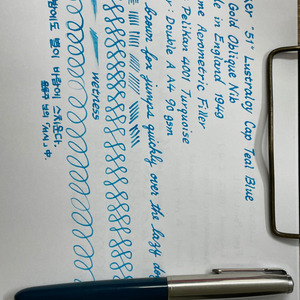 ker "51" Lustraloy Cap Teal Blue
Gold Oblique Nib
de in England 1949
me Aerometric Filler
Pelikan 4001 Turquoise
r: Double A A4 90 gsm
brown fox jumps quickly over the lazy do
wetness
밤에도 별이 바람에 스치운다.